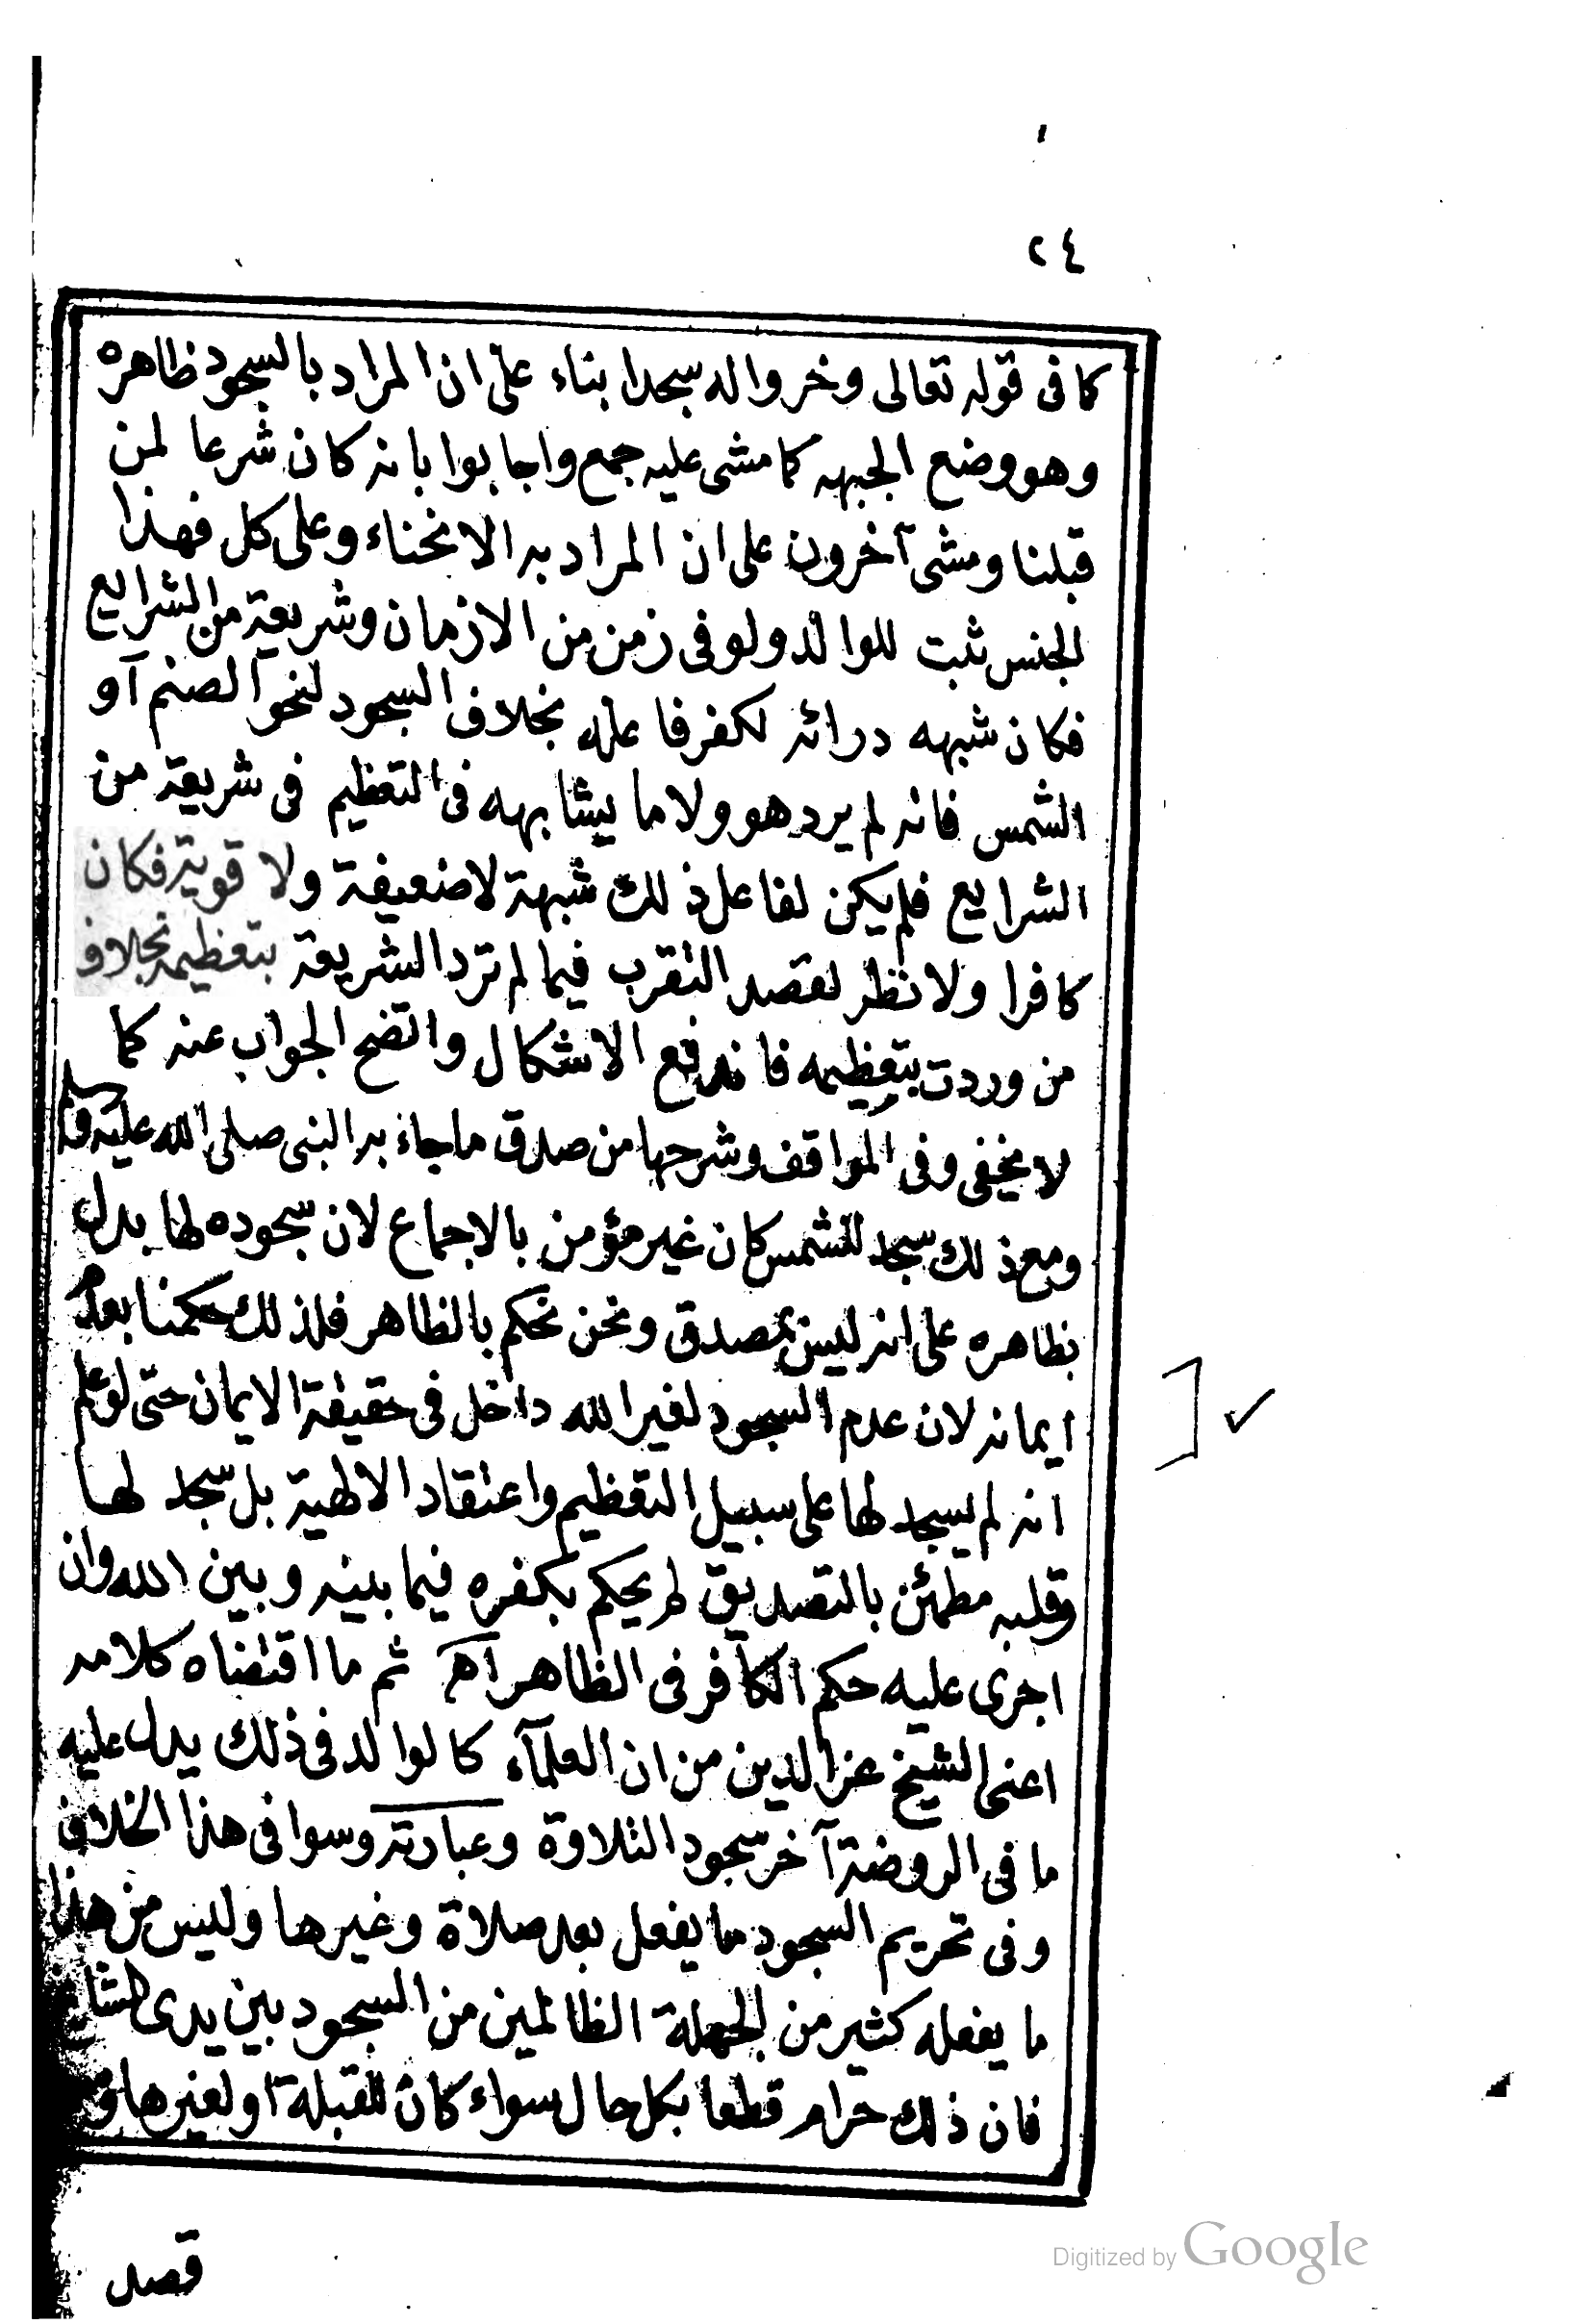 ٢٤
كما فى قوله تعالى وخروا له سجدا بناء على ان المراد بالسجود ظاهره
وهو وضع الجبهه كما مشى عليه جمع واجابوا بانه كان شرعا لمن
قبلنا ومشى آخرون على ان المراد به الانحناء وعلى كل فهذا
الجنس ثبت للوالد ولو فى زمن من الازمان وشريعة من الشرايع
فكان شبهه درائه لكفر فاعله بخلاف السجود لنحو الصنم او
الشمس فانه لم يرد هو ولا ما يشابهه فى التعظيم فى شريعة من
الشرايع فلم يكن لفاعل ذلك شبهة لا ضعيفة ولا قوية فكان
كافرا ولا نظر لقصد التقرب فيما لم ترد الشريعة بتعظيمه بخلاف
من وردت بتعظيمه فاندفع الاشكال واتضح الجواب عنه كما
لا يخفى وفى المواقف وشرحها من صدق ما جاء به النبى صلى الله عليه وسلم
ومع ذلك سجد للشمس كان غير مؤمن بالاجماع لان سجوده لها يدل
بظاهره على انه ليس بمصدق ونحن نحكم بالظاهر فلذلك حكمنا بعدم
ايمانه لان عدم السجود لغير الله داخل فى حقيقة الايمان حتى لو علم
انه لم يسجد لها على سبيل التعظيم واعتقاد الالهية بل سجد لها
وقلبه مطمئن بالتصديق لم يحكم بكفره فيما بينه وبين الله وان
اجرى عليه حكم الكافر فى الظاهر اهـ ثم ما اقتضاه كلامه
اعنى الشيخ عز الدين من ان العلمآء كالوالد فى ذلك يدل عليه
ما فى الروضة آخر سجود التلاوة وعبارته وسوا فى هذا الخلاف
وفى تحريم السجود ما يفعل بعد صلاة وغيرها وليس من هذا
ما يفعله كثير من الجهلة الظالمين من السجود بين يدى المشايخ
فان ذلك حرام قطعا بكل حال سواء كان للقبلة او لغيرها و
قصد
Digitized by Google